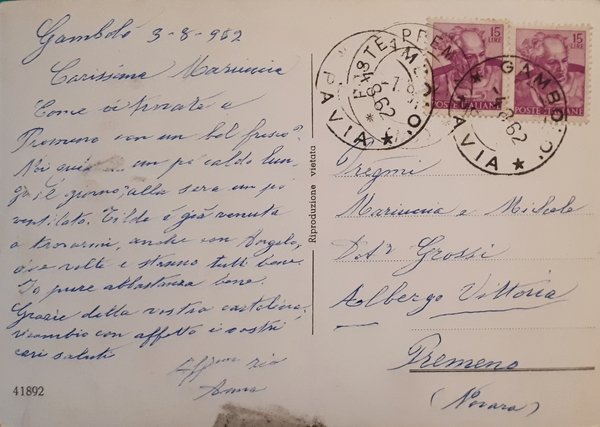 Gambolò 3-8-962
Carissima Mariuccia
Come vi trovate a
Premeno con un bel fresco?
Noi qui un po' caldo lun-
go il giorno, alla sera un po
ventilato. Tilde è già venuta
a trovarmi, anche con Angelo,
due volte e stanno tutti bene.
Io pure abbastanza bene.
Grazie della vostra cartolina,
ricambio con affetto i vostri
cari saluti
Aff.ma zia
Anna
41892
Riproduzione vietata
15 LIRE
POSTE ITALIANE
15 LIRE
POSTE ITALIANE
PREMENO
GAMBOLO'
PAVIA
GAMBOLO'
PAVIA
Pregmi
Mariuccia e Michele
Grossi
Albergo Vittoria
Premeno
(Novara)